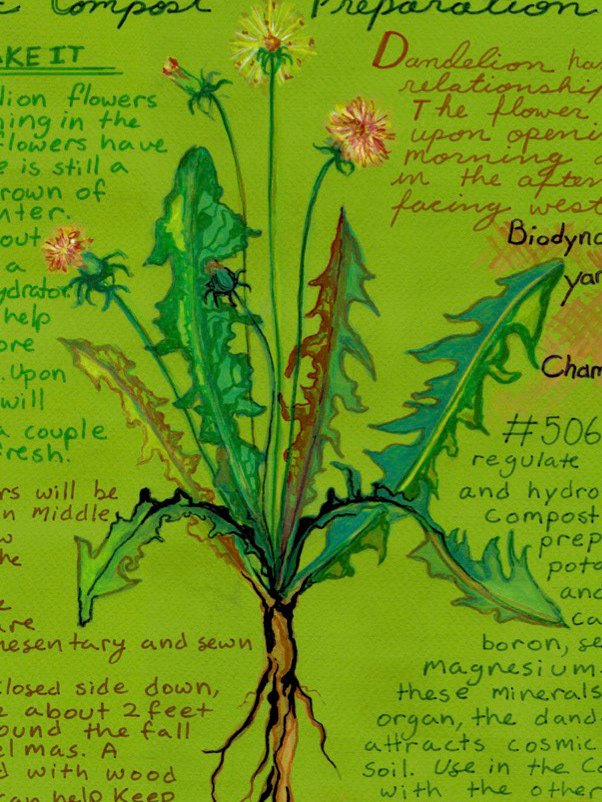 Compost Preparation
AKE IT
lion flowers
ning in the
flowers have
e is still a
rown of
nter.
out
a
ydrator.
help
ore
. Upon
will
a couple
resh.
rs will be
n Middle
w
he
e
are
mesentary and sewn
closed side down,
e about 2 feet
ound the fall
elmas. A
d with wood
can help Keep
Dandelion has
relationship
The flower
upon openi
morning a
in the after
facing west
Biodyna
yar
Cham
#506
regulate
and hydro
compost
prep
pota
and
ca
boron, se
magnesium.
these minerals
organ, the dand
attracts cosmic
soil. Use in the Co
with the other